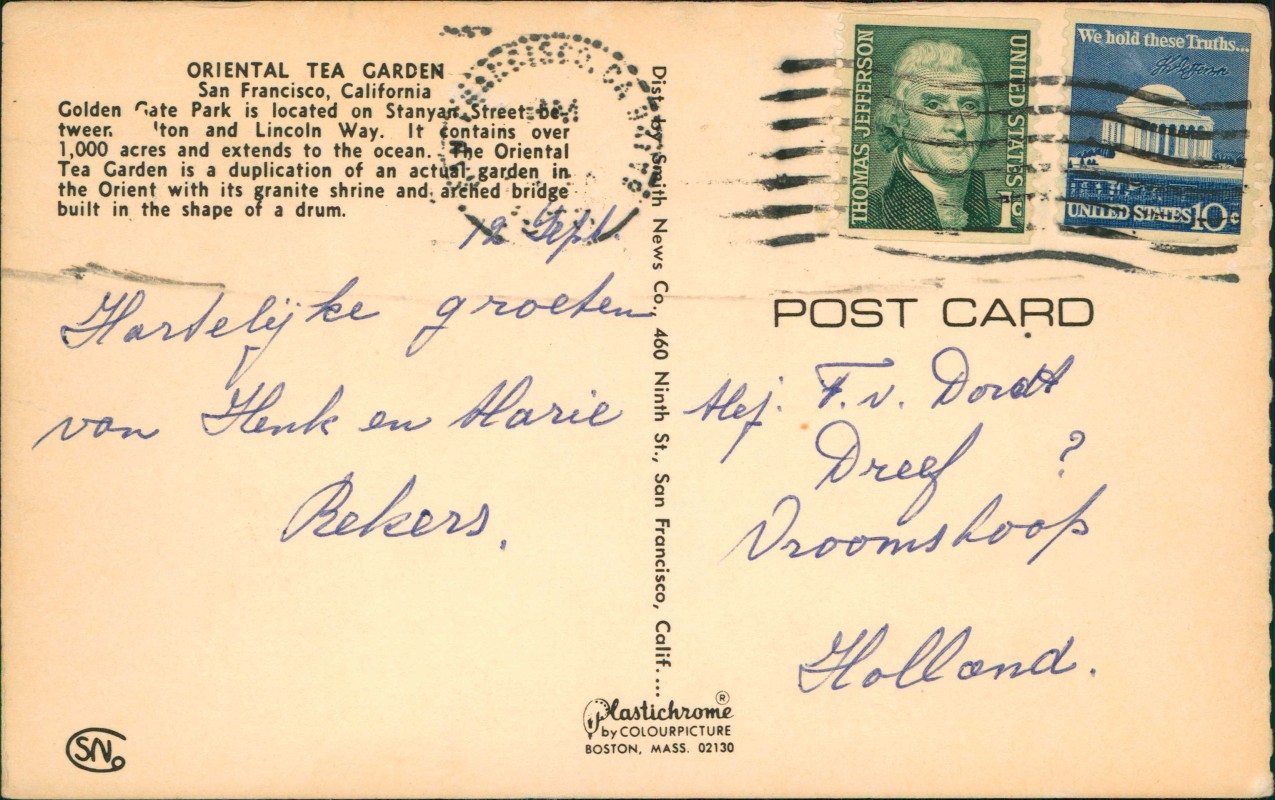 ORIENTAL TEA GARDEN
San Francisco, California
Golden Gate Park is located on Stanyan Street be-
tween ton and Lincoln Way. It contains over
1,000 acres and extends to the ocean. The Oriental
Tea Garden is a duplication of an actual garden in
the Orient with its granite shrine and arched bridge
built in the shape of a drum.
12 Sept.
Hartelijke groeten
van Henk en Marie
Rekers.
SN
Dist. by Smith News Co., 460 Ninth St., San Francisco, Calif....
Plastichrome ®
by COLOURPICTURE
BOSTON, MASS. 02130
AM
THOMAS JEFFERSON
UNITED STATES 1c
We hold these Truths...
UNITED STATES 10c
POST CARD
F. v. Dordt
Dreef ?
Vroomshoop
Holland.